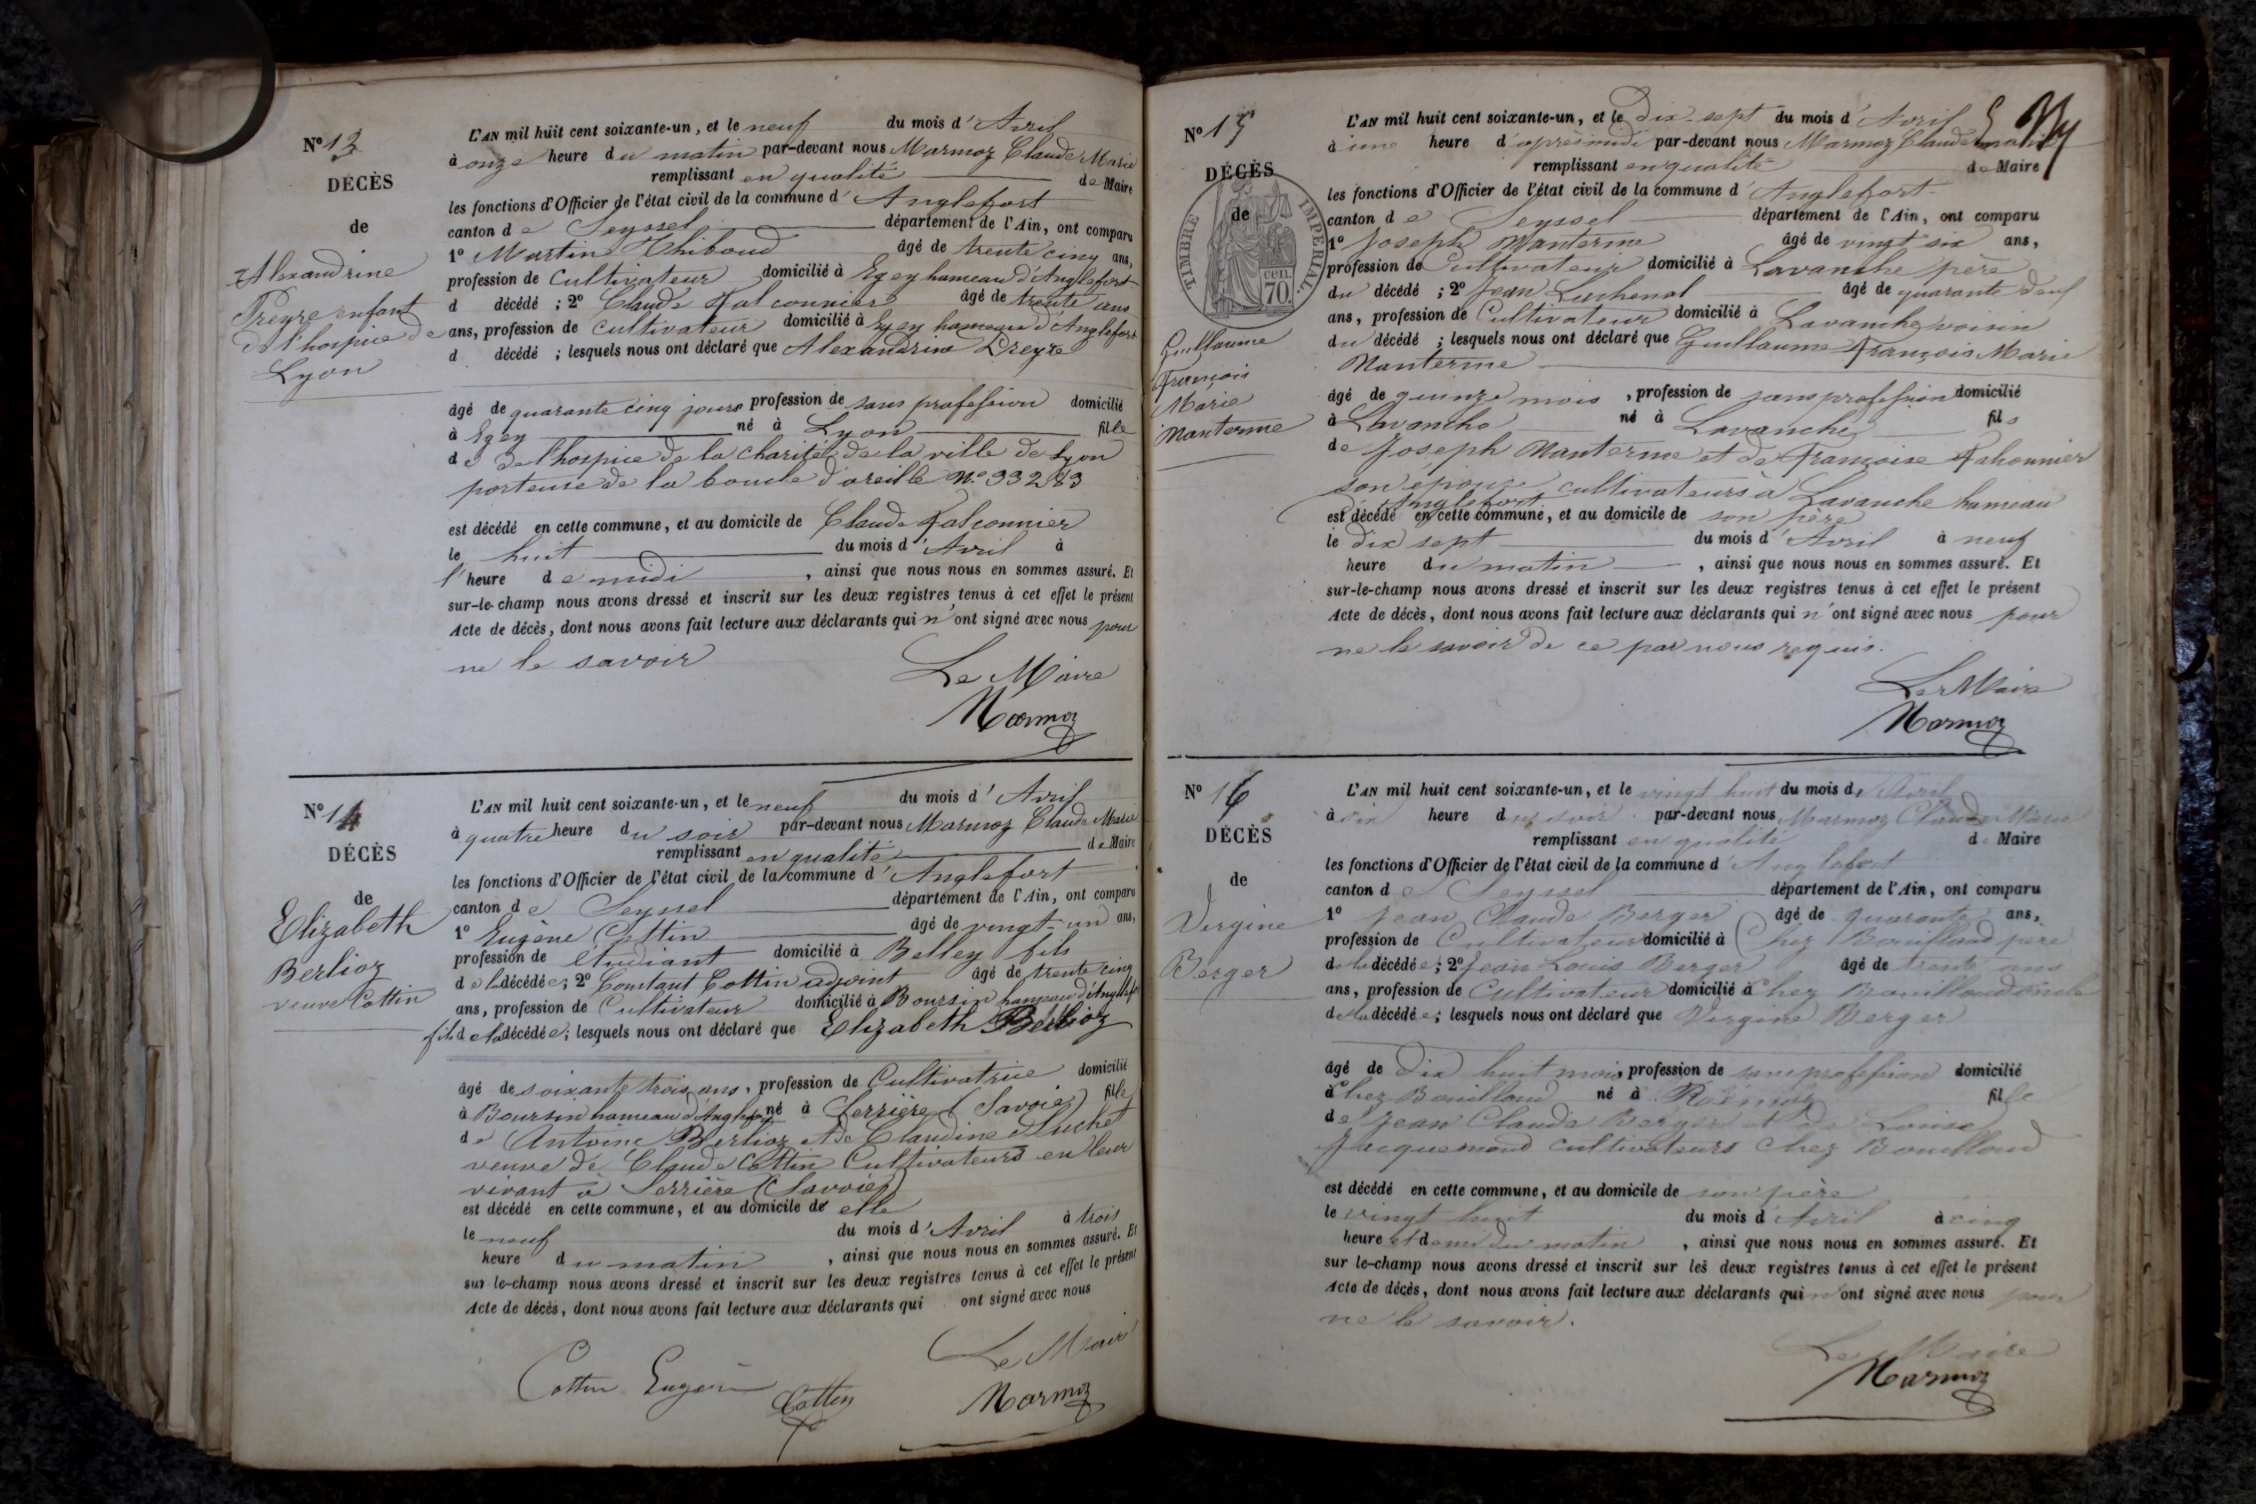 N° 13
DÉCÈS
de
Alexandrine
Preyre enfant
de l'hospice de
Lyon
L'AN mil huit cent soixante-un, et le neuf du mois d'Avril
à onze heure du matin par-devant nous Marmoz Claude Marie
remplissant en qualité de Maire
les fonctions d'Officier de l'état civil de la commune d'Anglefort
canton de Seyssel département de l'Ain, ont comparu
1° Martin Thiboud âgé de trente cinq ans,
profession de Cultivateur domicilié à Egey hameau d'Anglefort
d décédé ; 2° Claude Falconnier âgé de trente ans
ans, profession de Cultivateur domicilié à Egey hameau d'Anglefort
d décédé ; lesquels nous ont déclaré que Alexandrine Preyre
âgé de quarante cinq jours profession de sans profession domicilié
à Egey né à Lyon fille
de de l'hospice de la charité de la ville de Lyon
porteuse de la boucle d'oreille N° 33283
est décédé en cette commune, et au domicile de Claude Falconnier
le huit du mois d'Avril à
l'heure de midi , ainsi que nous nous en sommes assuré. Et
sur-le-champ nous avons dressé et inscrit sur les deux registres tenus à cet effet le présent
Acte de décès, dont nous avons fait lecture aux déclarants qui n'ont signé avec nous pour
ne le savoir
Le Maire
Marmoz
N° 14
DÉCÈS
de
Elizabeth
Berlioz
veuve Cottin
L'AN mil huit cent soixante-un, et le neuf du mois d'Avril
à quatre heure du soir par-devant nous Marmoz Claude Marie
remplissant en qualité de Maire
les fonctions d'Officier de l'état civil de la commune d'Anglefort
canton de Seyssel département de l'Ain, ont comparu
1° Eugène Cottin âgé de vingt-un ans,
profession de étudiant domicilié à Belley fils
de la décédée ; 2° Constant Cottin adjoint âgé de trente cinq
ans, profession de Cultivateur domicilié à Boursin hameau d'Anglefort
fils de la décédée ; lesquels nous ont déclaré que Elizabeth Berlioz
âgé de soixante trois ans, profession de Cultivatrice domicilié
à Boursin hameau d'Anglefort né à Serrière (Savoie) fille
de Antoine Berlioz et de Claudine Luchet
veuve de Claude Cottin Cultivateurs en leur
vivant à Serrière (Savoie)
est décédé en cette commune, et au domicile de elle
le neuf du mois d'Avril à trois
heure du matin , ainsi que nous nous en sommes assuré. Et
sur le-champ nous avons dressé et inscrit sur les deux registres tenus à cet effet le présent
Acte de décès, dont nous avons fait lecture aux déclarants qui ont signé avec nous
Le Maire
Cottin Eugène Cottin Marmoz
N° 15
DÉCÈS
de
TIMBRE IMPÉRIAL.
CEN. 70.
Guillaume
François
Marie
Manterme
L'AN mil huit cent soixante-un, et le Dix-sept du mois d'Avril
à une heure d'après midi par-devant nous Marmoz Claude Marie
remplissant en qualité de Maire
les fonctions d'Officier de l'état civil de la commune d'Anglefort
canton de Seyssel département de l'Ain, ont comparu
1° Joseph Manterme âgé de vingt six ans,
profession de Cultivateur domicilié à Lavanche père
du décédé ; 2° Jean Luchenal âgé de quarante deux
ans, profession de Cultivateur domicilié à Lavanche voisin
du décédé ; lesquels nous ont déclaré que Guillaume François Marie
Manterme
âgé de quinze mois , profession de sans profession domicilié
à Lavanche né à Lavanche fils
de Joseph Manterme et de Françoise Falconnier
son épouse cultivateurs à Lavanche hameau
d'Anglefort
est décédé en cette commune, et au domicile de son père
le dix sept du mois d'Avril à neuf
heure du matin , ainsi que nous nous en sommes assuré. Et
sur-le-champ nous avons dressé et inscrit sur les deux registres tenus à cet effet le présent
Acte de décès, dont nous avons fait lecture aux déclarants qui n'ont signé avec nous pour
ne le savoir de ce par nous requis.
Le Maire
Marmoz
N° 16
DÉCÈS
de
Virgine
Berger
L'AN mil huit cent soixante-un, et le vingt huit du mois d'Avril
à six heure du soir par-devant nous Marmoz Claude Marie
remplissant en qualité de Maire
les fonctions d'Officier de l'état civil de la commune d'Anglefort
canton de Seyssel département de l'Ain, ont comparu
1° Jean Claude Berger âgé de quarante ans,
profession de Cultivateur domicilié à Chez Bouilloud père
de la décédée ; 2° Jean Louis Berger âgé de trente ans
ans, profession de Cultivateur domicilié à Chez Bouilloud oncle
de la décédée ; lesquels nous ont déclaré que Virgine Berger
âgé de Dix huit mois, profession de sans profession domicilié
à Chez Bouilloud né à fille
de Jean Claude Berger et de Louise
Jacquemond cultivateurs Chez Bouilloud
est décédé en cette commune, et au domicile de son père
le vingt huit du mois d'Avril à cinq
heure et demi du matin , ainsi que nous nous en sommes assuré. Et
sur le-champ nous avons dressé et inscrit sur les deux registres tenus à cet effet le présent
Acte de décès, dont nous avons fait lecture aux déclarants qui n'ont signé avec nous pour
ne le savoir.
Le Maire
Marmoz